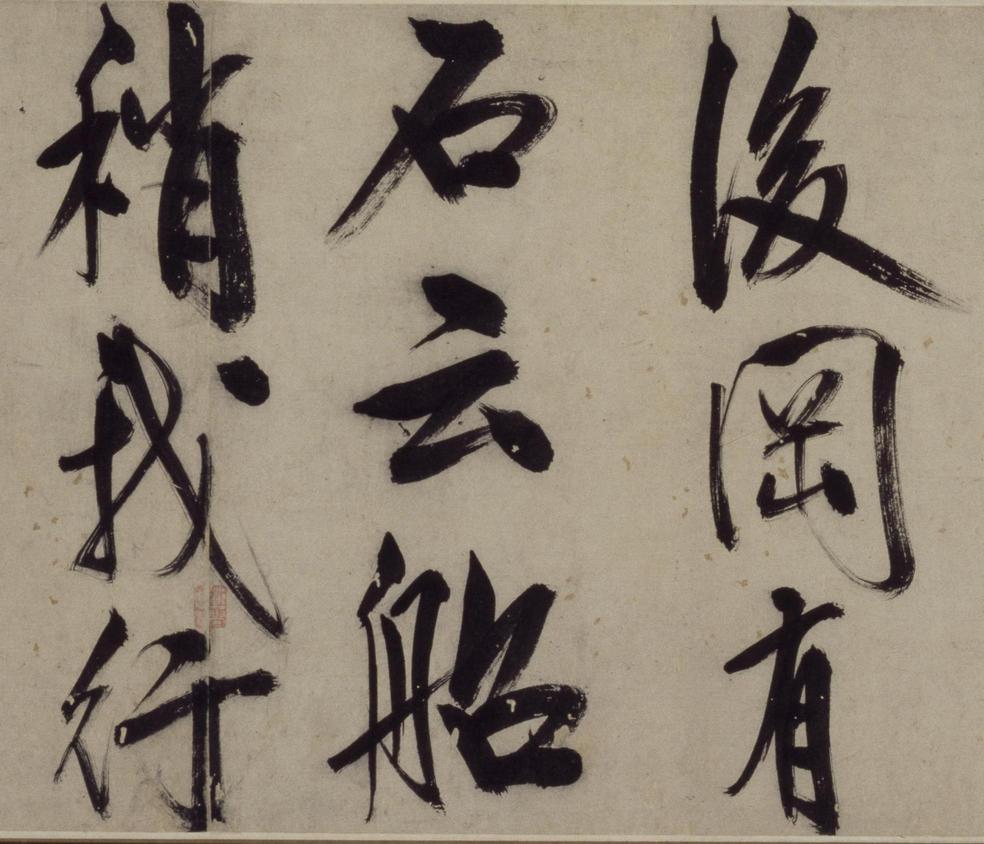 後岡有
石云船
稍我行